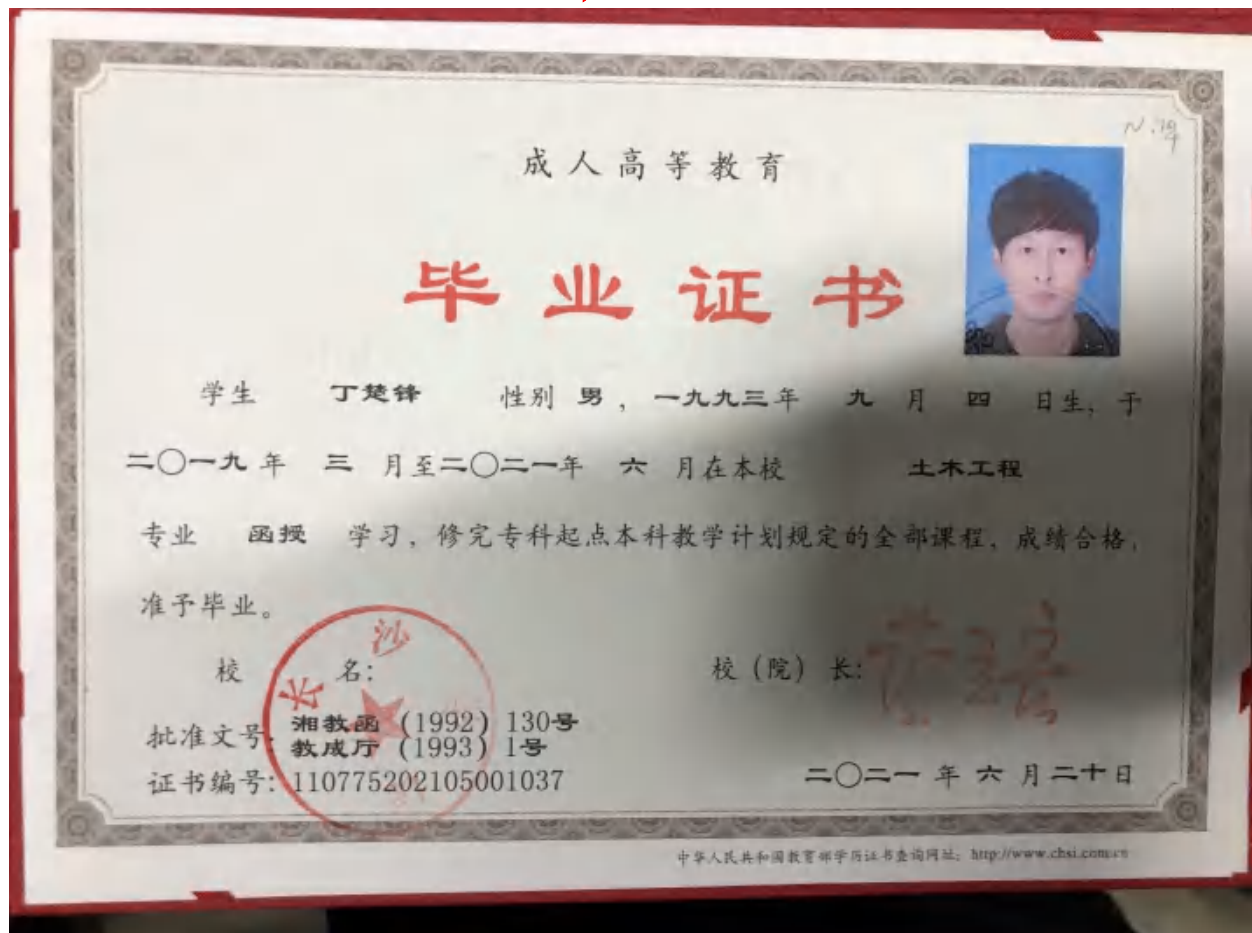 成人高等教育
毕业证书
学生 丁楚锋 性别 男，一九九三年 九 月 四 日生，于
二〇一九 年 三 月至二〇二一年 六 月在本校 土木工程
专业 函授 学习，修完专科起点本科教学计划规定的全部课程，成绩合格，
准予毕业。
校 名：
长沙
校（院）长：
批准文号：湘教函（1992）130号
教成厅（1993）1号
证书编号：110775202105001037
二〇二一 年 六 月二十日
中华人民共和国教育部学历证书查询网址：http://www.chsi.com.cn